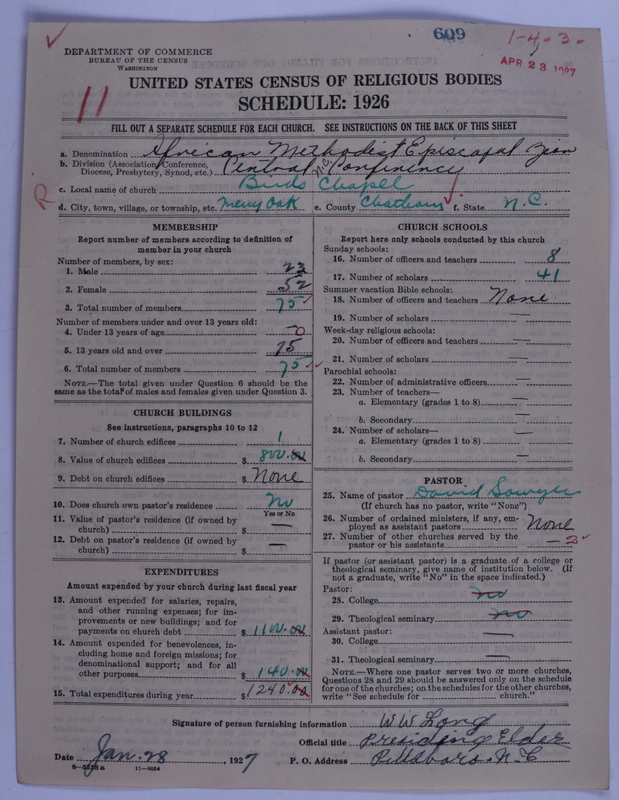 609
1-4-3-
APR 23 1927
DEPARTMENT OF COMMERCE
BUREAU OF THE CENSUS
WASHINGTON
11
UNITED STATES CENSUS OF RELIGIOUS BODIES
SCHEDULE: 1926
FILL OUT A SEPARATE SCHEDULE FOR EACH CHURCH. SEE INSTRUCTIONS ON THE BACK OF THIS SHEET
a. Denomination African Methodist Episcopal Zion
b. Division (Association, Conference, Diocese, Presbytery, Synod, etc.) Central N.C. Conference
R
c. Local name of church Birds Chapel
d. City, town, village, or township, etc. Merry Oak e. County Chatham f. State N.C.
MEMBERSHIP
Report number of members according to definition of
member in your church
Number of members, by sex:
1. Male 23
2. Female 52
3. Total number of members 75
Number of members under and over 13 years old:
4. Under 13 years of age -0
5. 13 years old and over 75
6. Total number of members 75
NOTE.—The total given under Question 6 should be the
same as the total of males and females given under Question 3.
CHURCH BUILDINGS
See instructions, paragraphs 10 to 12
7. Number of church edifices 1
8. Value of church edifices $ 800.00
9. Debt on church edifices $ None
10. Does church own pastor's residence No
Yes or No
11. Value of pastor's residence (if owned by
church) $ —
12. Debt on pastor's residence (if owned by
church) $ —
EXPENDITURES
Amount expended by your church during last fiscal year
13. Amount expended for salaries, repairs,
and other running expenses; for im-
provements or new buildings; and for
payments on church debt $ 1100.00
14. Amount expended for benevolences, in-
cluding home and foreign missions; for
denominational support; and for all
other purposes $ 140.00
15. Total expenditures during year $ 1240.00
CHURCH SCHOOLS
Report here only schools conducted by this church
Sunday schools:
16. Number of officers and teachers 8
17. Number of scholars 41
Summer vacation Bible schools:
18. Number of officers and teachers None
19. Number of scholars —
Week-day religious schools:
20. Number of officers and teachers —
21. Number of scholars —
Parochial schools:
22. Number of administrative officers —
23. Number of teachers—
a. Elementary (grades 1 to 8) —
b. Secondary —
24. Number of scholars—
a. Elementary (grades 1 to 8) —
b. Secondary —
PASTOR
25. Name of pastor David Sawyer
(If church has no pastor, write "None")
26. Number of ordained ministers, if any, em-
ployed as assistant pastors None
27. Number of other churches served by the
pastor or his assistants — 2
If pastor (or assistant pastor) is a graduate of a college or
theological seminary, give name of institution below. (If
not a graduate, write "No" in the space indicated.)
Pastor:
28. College no
29. Theological seminary no
Assistant pastor:
30. College —
31. Theological seminary —
NOTE.—Where one pastor serves two or more churches,
Questions 28 and 29 should be answered only on the schedule
for one of the churches; on the schedules for the other churches,
write "See schedule for church."
Signature of person furnishing information W W Long
Official title Presiding Elder
Date Jan. 28, 1927 P. O. Address Pittsboro N.C
8—5518a 11—9034